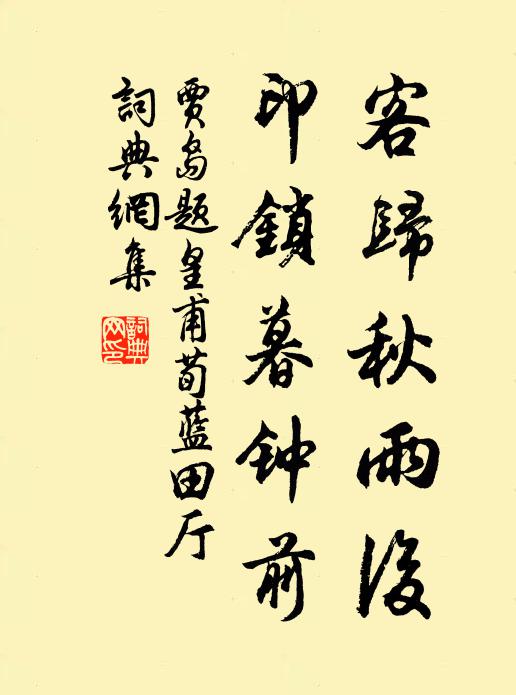 客歸秋雨後
印鎖暮钟前
賈島题皇甫荀藍田厅
詞典網集
詞典网印